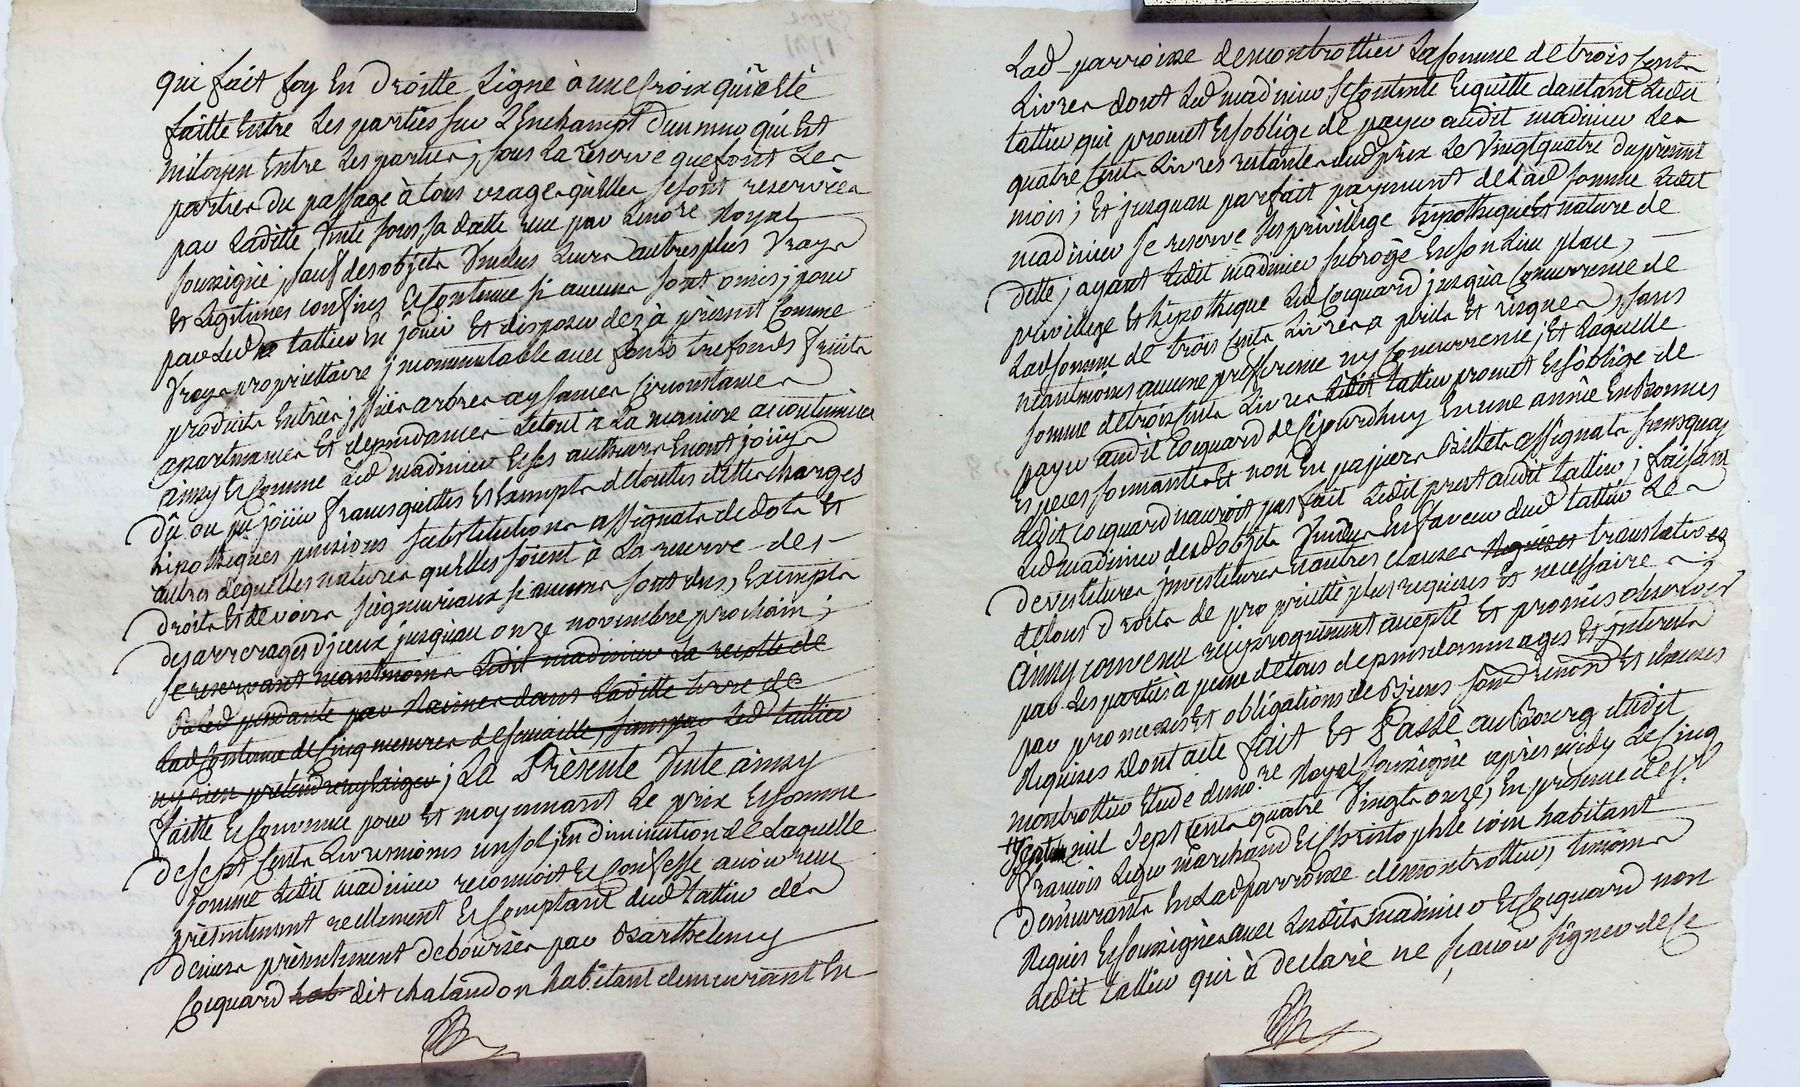 qui fait foy En droitte Ligne à une Croix qui à êté
faitte Entre Les parties sur L'Enchampt d'un mur qui Est
mitoyen Entre Les parties; sous La rèserve que font Les
parties du passage à tous usages qu'elles se sont reservées
par Laditte Vente sous sa datte reçue par Le no.re Royal
soussigné; sauf des objets Vendus Leurs autres plus Vrays
Et Légitimes confins Et Contenue si aucuns sont omis; pour
par Led tattieu En jouir Et disposer dez à prèsent Comme
Vrays propriettaire jncommutable avec fonts trefonds fruits
produits Entrées jssües arbres aysances Circonstances
apartenances Et dépendances Letout a La manière acoutumée
ainsy Et Comme Led madinieu Et ses autheurs En ont joüÿs
dû ou pu joüir francs quittes Et Exempts de touttes dettes charges
hipothèques pensions substitutions assignats de dots Et
autres dequelles natures qu'elles soient à La reserve des
droits Et devoirs seigneuriaux si aucuns sont dus, Exempts
des arrerages d'jceux jusqu'au onze novembre prochain;
se reservant neantmoins Ledit madinieu La recolte de
Bled pendante par Racines dans Laditte terre de
Lad Contenue de Cinq mesures de semaille, sans que Led tattieu
ny rien prétendre ny Exiger; La Présente Vente ainsy
faitte Et Convenue pour Et moyennant Le prix Et somme
de sept Cents Livres moins un sol; En diminution de Laquelle
somme Ledit madinieu reconnoit Et Confesse avoir reçu
prèsentement reellement Et Comptant dud tattieu des
deniers prèsentement deboursés par Barthelemy
Cocquard hab dit chalandon habitant demeurant En
Lad parroisse de montrottieu La somme de trois Cents
Livres dont Led madinieu se Contente Et quitte d'autant Ledit
tattieu qui promet Et s'oblige de payer audit madinieu Les
quatre Cents Livres restantes dud prix Le Vingt quatre du prèsent
mois; Et jusqu'au parfait payement de Lad somme Ledit
madinieu se reserve ses privillège hypotheque Et nature de
dette; ayant Ledit madinieu subrogé En son Lieu place,
privillege Et hipotheque Led Cocquard jusqu'à Concurrence de
Lad somme de trois Cents Livres a perils Et risques, sans
neantmoins aucune prefference ny Concurrence; Et Laquelle
somme de trois Cents Livres Ledit tattieu promet Et s'oblige de
payer audit Cocquard de Cejourd'huy En une année En Bonnes
Especes sonnantes Et non En papiers Billets assignats sans quoy
Ledit Cocquard n'auroit pas fait Ledit prest audit tattieu; faisant
Led madinieu desd objets Vendus En faveur dud tattieu Les
devestitures jnvestitures Et autres clauses Requises translatives
de tous droits de propriétté plus requises Et necessaires;
Ainsy convenu réciproquement acepté Et promis observer
par Les parties à peine de tous depens dommages Et jnterests
par promesses Et obligations de Biens soumd renond Et clauses
Requises Dont acte fait Et Passé au Bourg dudit
montrottieu Etude du no.re Royal soussigné après midy Le Cinq
mil sept Cents quatre Vingts onze; En presence des s.rs
françois Leger marchand Et Christophle coin habitant
demeurants En Lad parroisse de montrottieu, temoins
Requis Et soussignés avec Lesdits madinieu Et Cocquard non
Ledit tattieu qui à declaré ne sçavoir signer de Ce